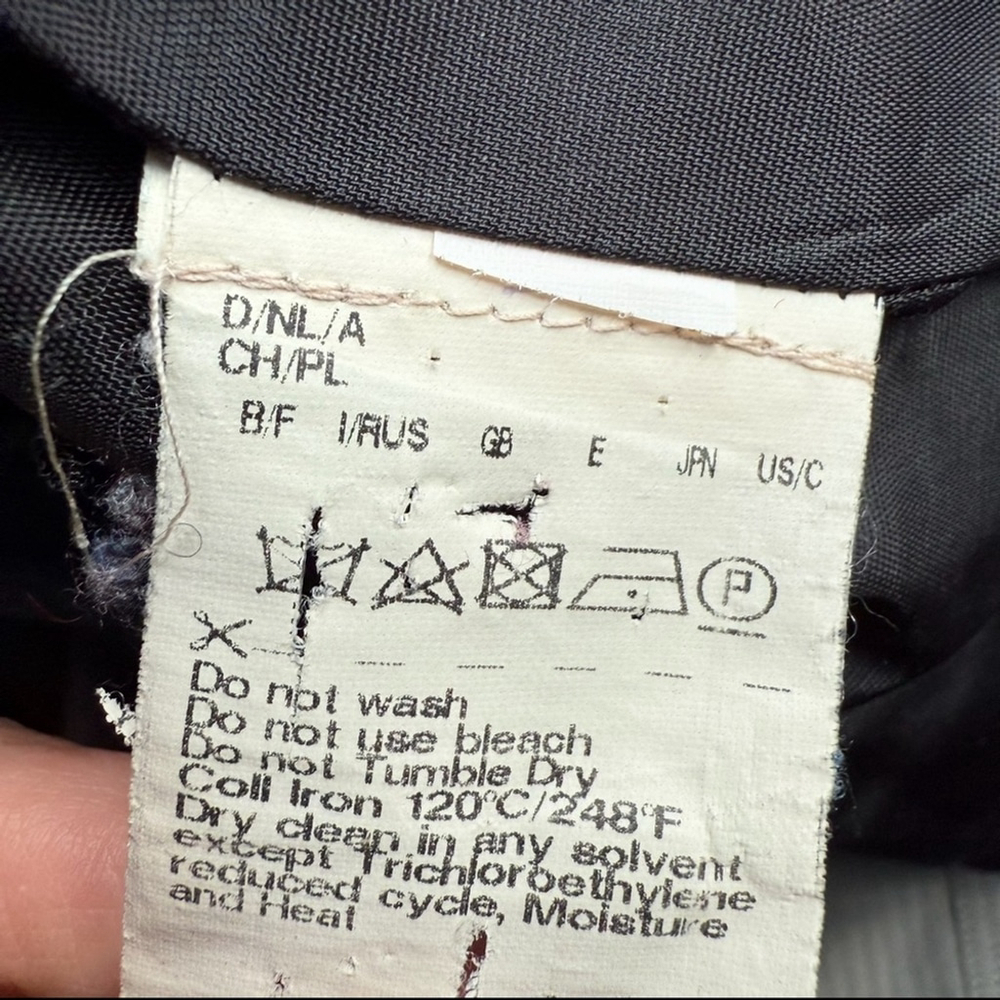 D/NL/A
CH/PL
B/F I/RUS GB E JPN US/C
P
Do not wash
Do not use bleach
Do not Tumble Dry
Coll Iron 120°C/248°F
Dry clean in any solvent
except Trichloroethylene
reduced cycle, Moisture
and Heat